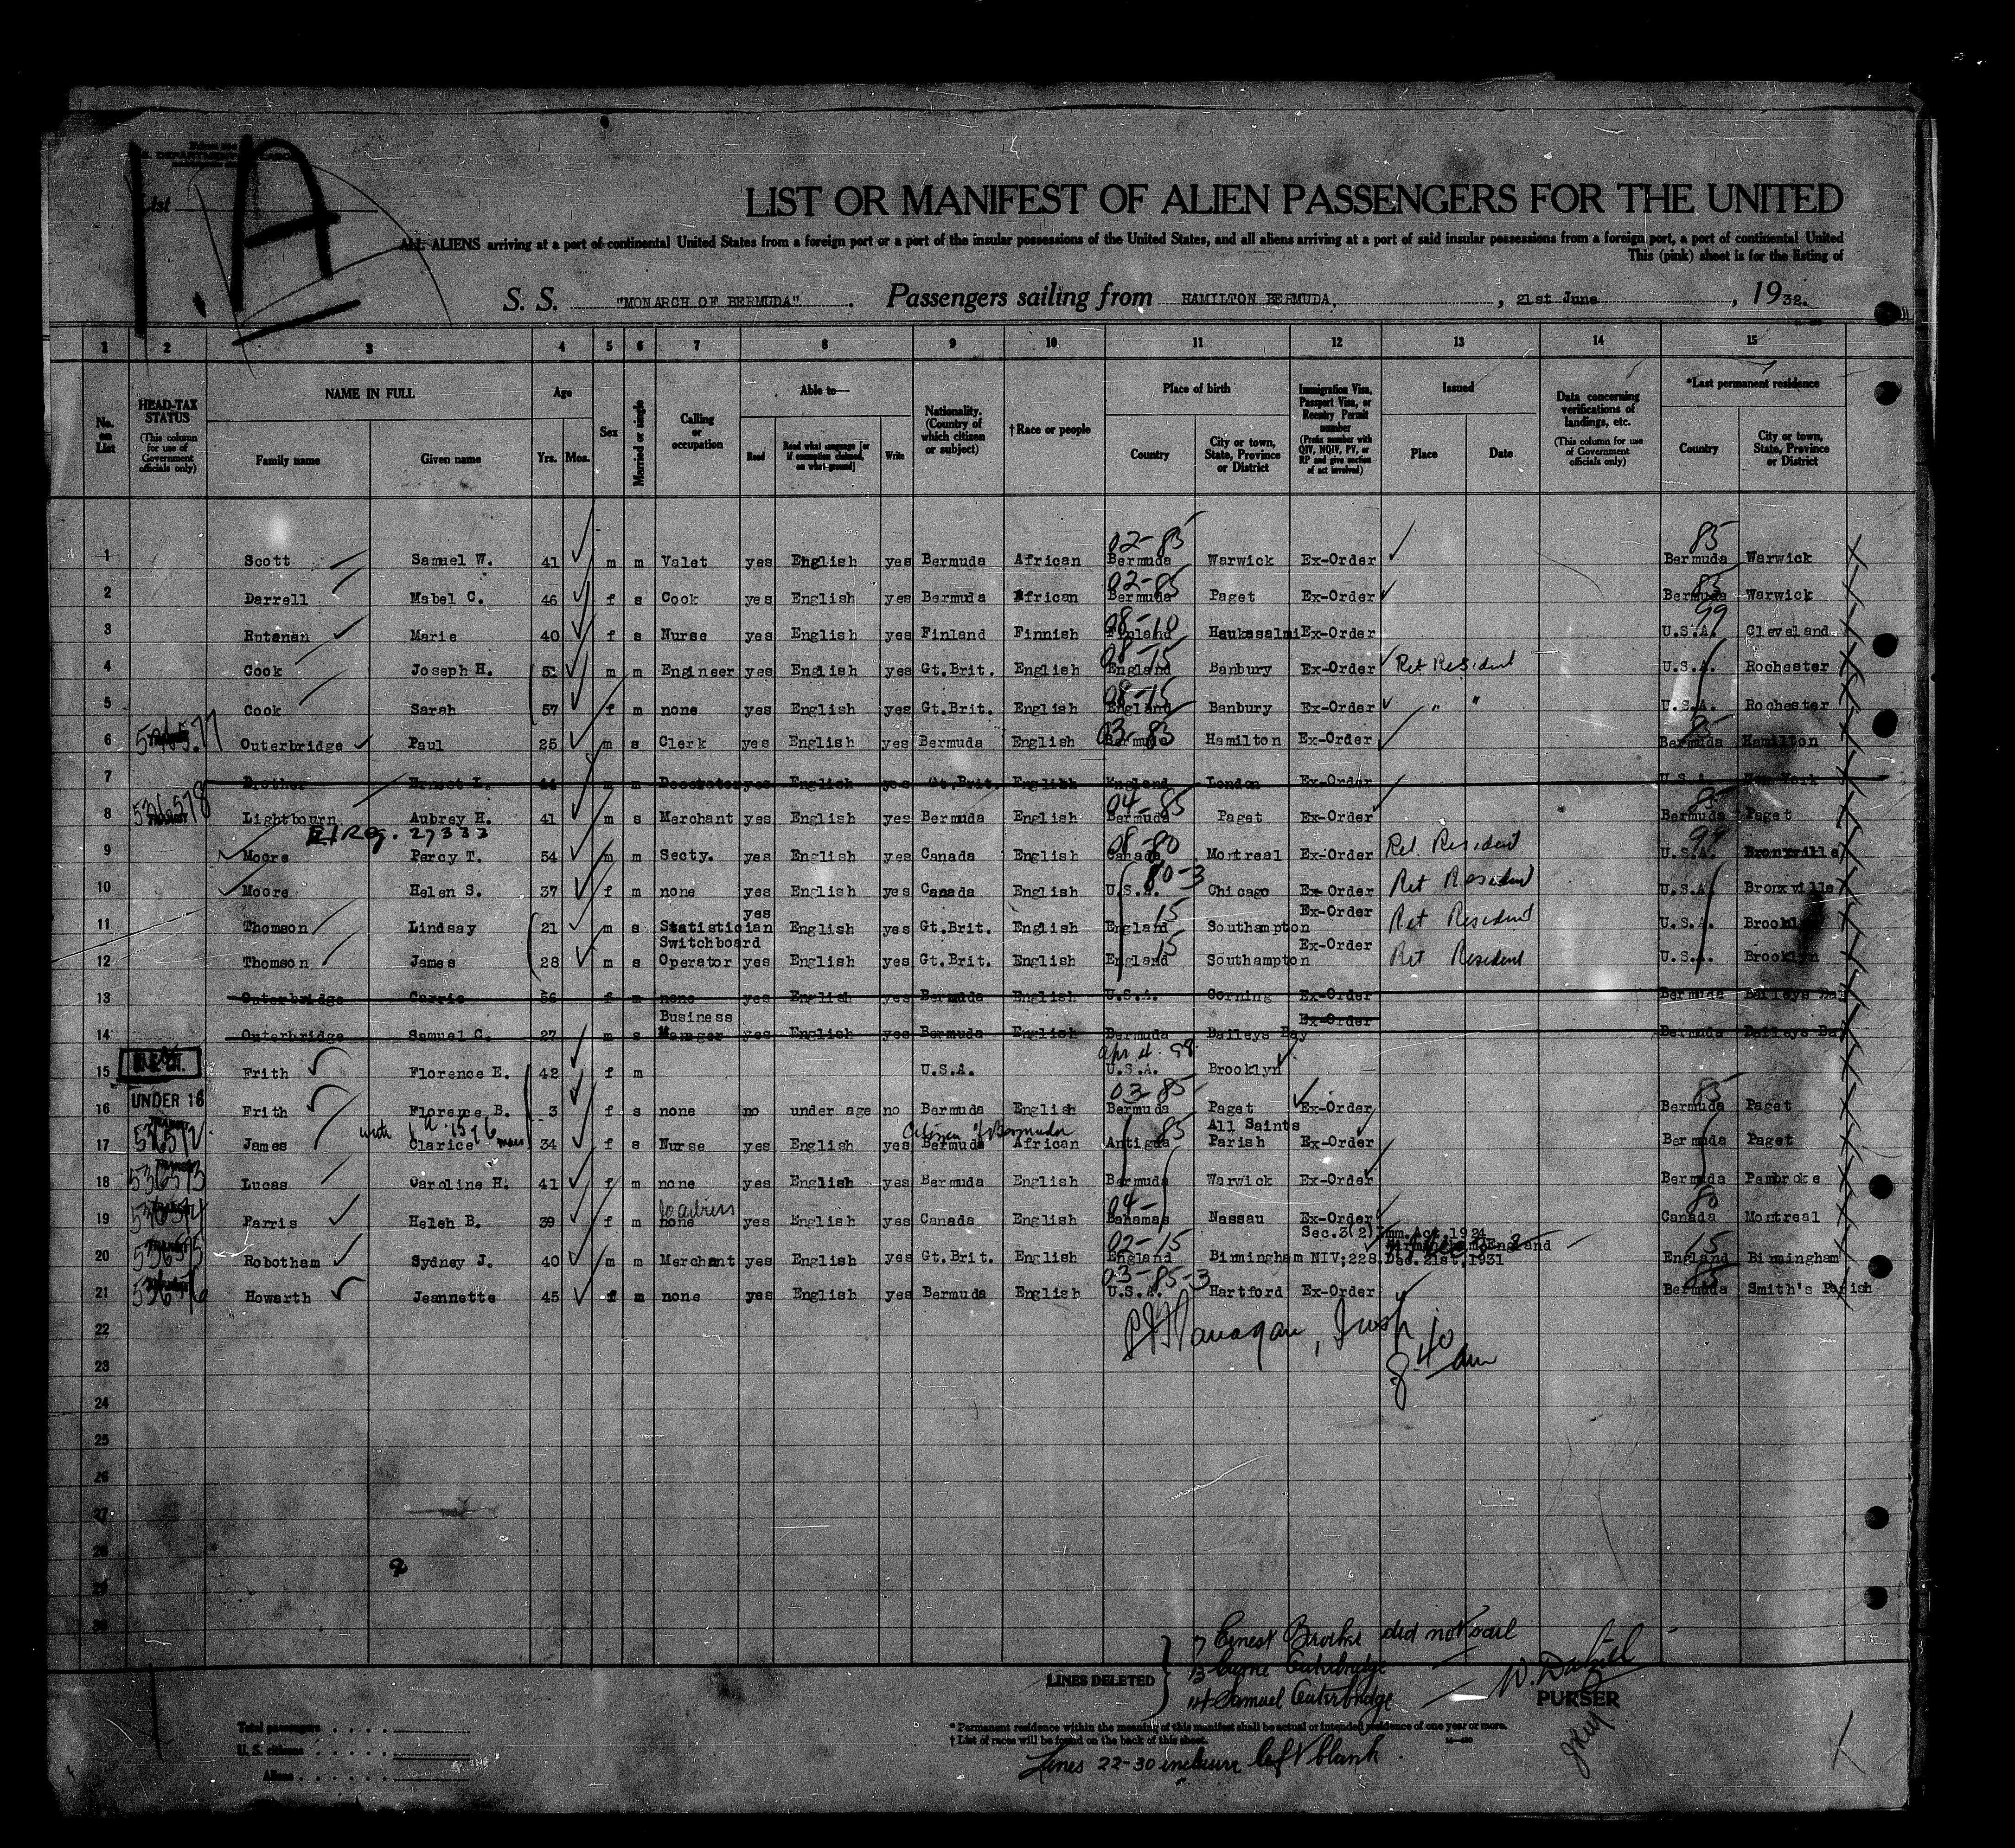 1A
U.S. DEPARTMENT OF LABOR
List
LIST OR MANIFEST OF ALIEN PASSENGERS FOR THE UNITED
ALL ALIENS arriving at a port of continental United States from a foreign port or a port of the insular possessions of the United States, and all aliens arriving at a port of said insular possessions from a foreign port, a port of continental United
This (pink) sheet is for the listing of
S. S. "MONARCH OF BERMUDA". Passengers sailing from HAMILTON BERMUDA, , 21st June , 1932.
1 2 3 4 5 6 7 8 9 10 11 12 13 14 15
No. on List
HEAD-TAX STATUS (This column for use of Government officials only)
NAME IN FULL Family name Given name
Age Yrs. Mos.
Sex
Married or single
Calling or occupation
Able to— Read Read what language [or if exemption claimed, on what ground] Write
Nationality. (Country of which citizen or subject)
†Race or people
Place of birth Country City or town, State, Province or District
Immigration Visa, Passport Visa, or Reentry Permit number (Prefix number with QIV, NQIV, PV, or RP and give section of act involved)
Issued Place Date
Data concerning verifications of landings, etc. (This column for use of Government officials only)
*Last permanent residence Country City or town, State, Province or District
02-85 85
1 Scott Samuel W. 41 m m Valet yes English yes Bermuda African Bermuda Warwick Ex-Order Bermuda Warwick
02-85 85
2 Darrell Mabel C. 46 f s Cook yes English yes Bermuda African Bermuda Paget Ex-Order Bermuda Warwick
08-10 99
3 Rutanan Marie 40 f s Nurse yes English yes Finland Finnish Finland Haukasalmi Ex-Order U.S.A. Cleveland
08-15
4 Cook Joseph H. 52 m m Engineer yes English yes Gt.Brit. English England Banbury Ex-Order Ret Resident U.S.A. Rochester
08-15
5 Cook Sarah 57 f m none yes English yes Gt.Brit. English England Banbury Ex-Order " " U.S.A. Rochester
03-85 85
6 536577 Outerbridge Paul 25 m s Clerk yes English yes Bermuda English Bermuda Hamilton Ex-Order Bermuda Hamilton
7 Brother Ernest L. 44 m m Decorator yes English yes Gt.Brit. English England London Ex-Order U.S.A. New York
04-85 85
8 536578 Lightbourn Aubrey H. 41 m s Merchant yes English yes Bermuda English Bermuda Paget Ex-Order Bermuda Paget
Reg. 27333
08-80 99
9 Moore Percy T. 54 m m Secty. yes English yes Canada English Canada Montreal Ex-Order Ret. Resident U.S.A. Bronxville
80-3
10 Moore Helen S. 37 f m none yes English yes Canada English U.S.A. Chicago Ex-Order Ret Resident U.S.A. Bronxville
15
11 Thomson Lindsay 21 m s Statistician yes English yes Gt.Brit. English England Southampton Ex-Order Ret Resident U.S.A. Brooklyn
15
12 Thomson James 28 m s Switchboard Operator yes English yes Gt.Brit. English England Southampton Ex-Order Ret Resident U.S.A. Brooklyn
13 Outerbridge Carrie 56 f m none yes English yes Bermuda English U.S.A. Corning Ex-Order Bermuda Baileys Bay
14 Outerbridge Samuel C. 27 m s Business Manager yes English yes Bermuda English Bermuda Baileys Bay Ex-Order Bermuda Baileys Bay
15 Frith Florence E. 42 f m U.S.A. U.S.A. Brooklyn
03-85 85
16 UNDER 16 Frith Florence B. 3 f s none no under age no Bermuda English Bermuda Paget Ex-Order Bermuda Paget
with Citizen of Bermuda 85
17 James Clarice 34 f s Nurse yes English yes Bermuda African Antigua All Saints Parish Ex-Order Bermuda Paget
18 536573 Lucas Caroline H. 41 f m none yes English yes Bermuda English Bermuda Warwick Ex-Order Bermuda Pembroke
04- 80
19 536574 Farris Helen B. 39 f m none yes English yes Canada English Bahamas Nassau Ex-Order Canada Montreal
Sec.3(2)Imm.Act,1924
02-15 15
20 536575 Robotham Sydney J. 40 m m Merchant yes English yes Gt.Brit. English England Birmingham NIV;228. Dec.21st,1931 England Birmingham
03-85-3 85
21 536576 Howarth Jeannette 45 f m none yes English yes Bermuda English U.S.A. Hartford Ex-Order Bermuda Smith's Parish
22
Flanagan, Insp
8 40 am
23
24
25
26
27
28
29
30
LINES DELETED
7 Ernest Brother did not sail
13 Carrie Outerbridge
14 Samuel Outerbridge
PURSER
Total passengers
U. S. citizens
Aliens
* Permanent residence within the meaning of this manifest shall be actual or intended residence of one year or more.
† List of races will be found on the back of this sheet.
Lines 22-30 inclusive left blank.